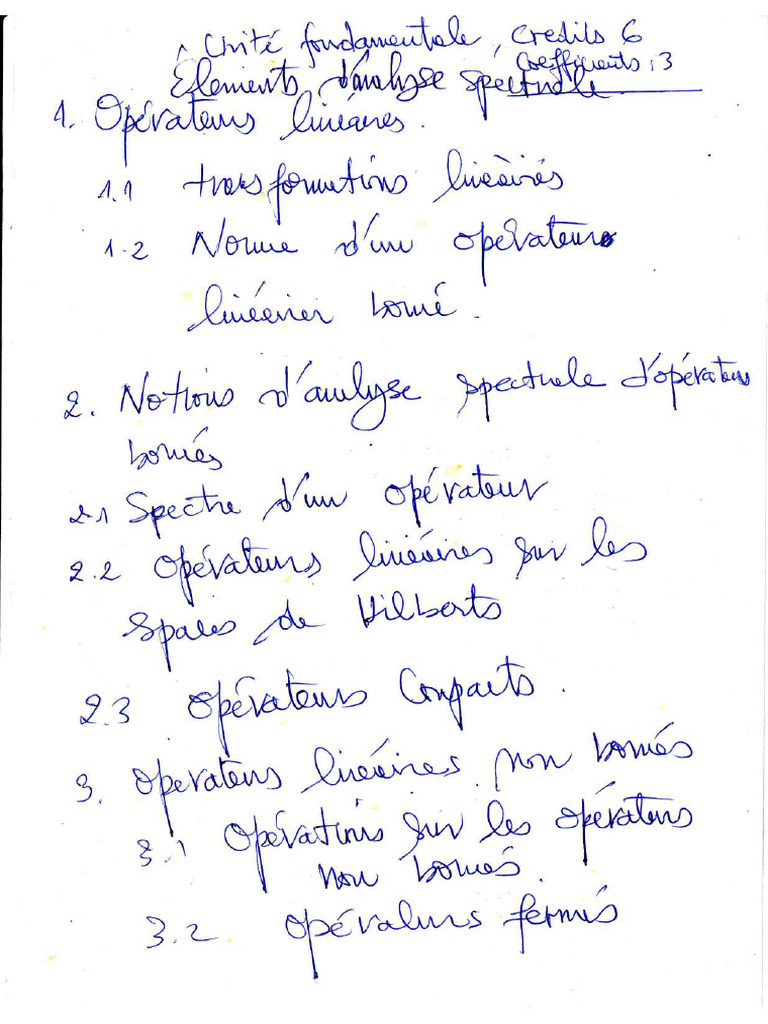 Unité fondamentale, Credits 6
Coefficients : 3
Elements d'analyse spectrale.
1. Opérateurs linéaires.
1.1 transformations linéaires
1.2 Norme d'un opérateur
linéaire borné.
2. Notions d'analyse spectrale d'opérateurs
bornés
2.1 Spectre d'un opérateur
2.2 Opérateurs linéaires sur les
Spaces de Hilberts
2.3 Opérateurs Compacts.
3. Operateurs linéaires non bornés
3.1 Opérations sur les opérateurs
non bornés.
3.2 Opérateurs fermés